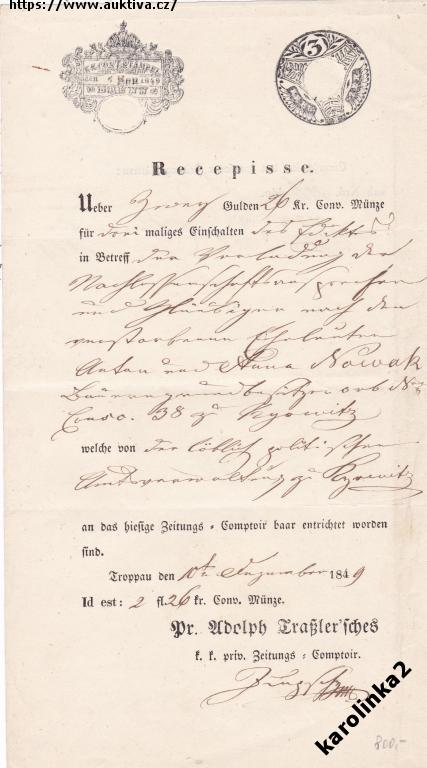 https://www.auktiva.cz/
K.K. CONT. STÄMPEL
1849
3
Recepisse.
Ueber Zwey Gulden 26 Kr. Conv. Münze
für drei maliges Einschalten des Ediktes
in Betreff der Vorladung der
Nachlassenschaftsansprecher
und Gläubiger nach den
verstorbenen Eheleuten
Anton und Anna Nowak
Bauerngrundbesitzer sub Nro
Consc. 38 zu Kyowitz
welche von der löblich politischen
Amtsverwaltung zu Kyowitz
an das hiesige Zeitungs-Comptoir baar entrichtet worden
sind.
Troppau den 10t Dezember 1849
Id est: 2 fl. 26 kr. Conv. Münze.
Pr. Adolph Traßler'sches
k. k. priv. Zeitungs-Comptoir.
karolinka2
800,-